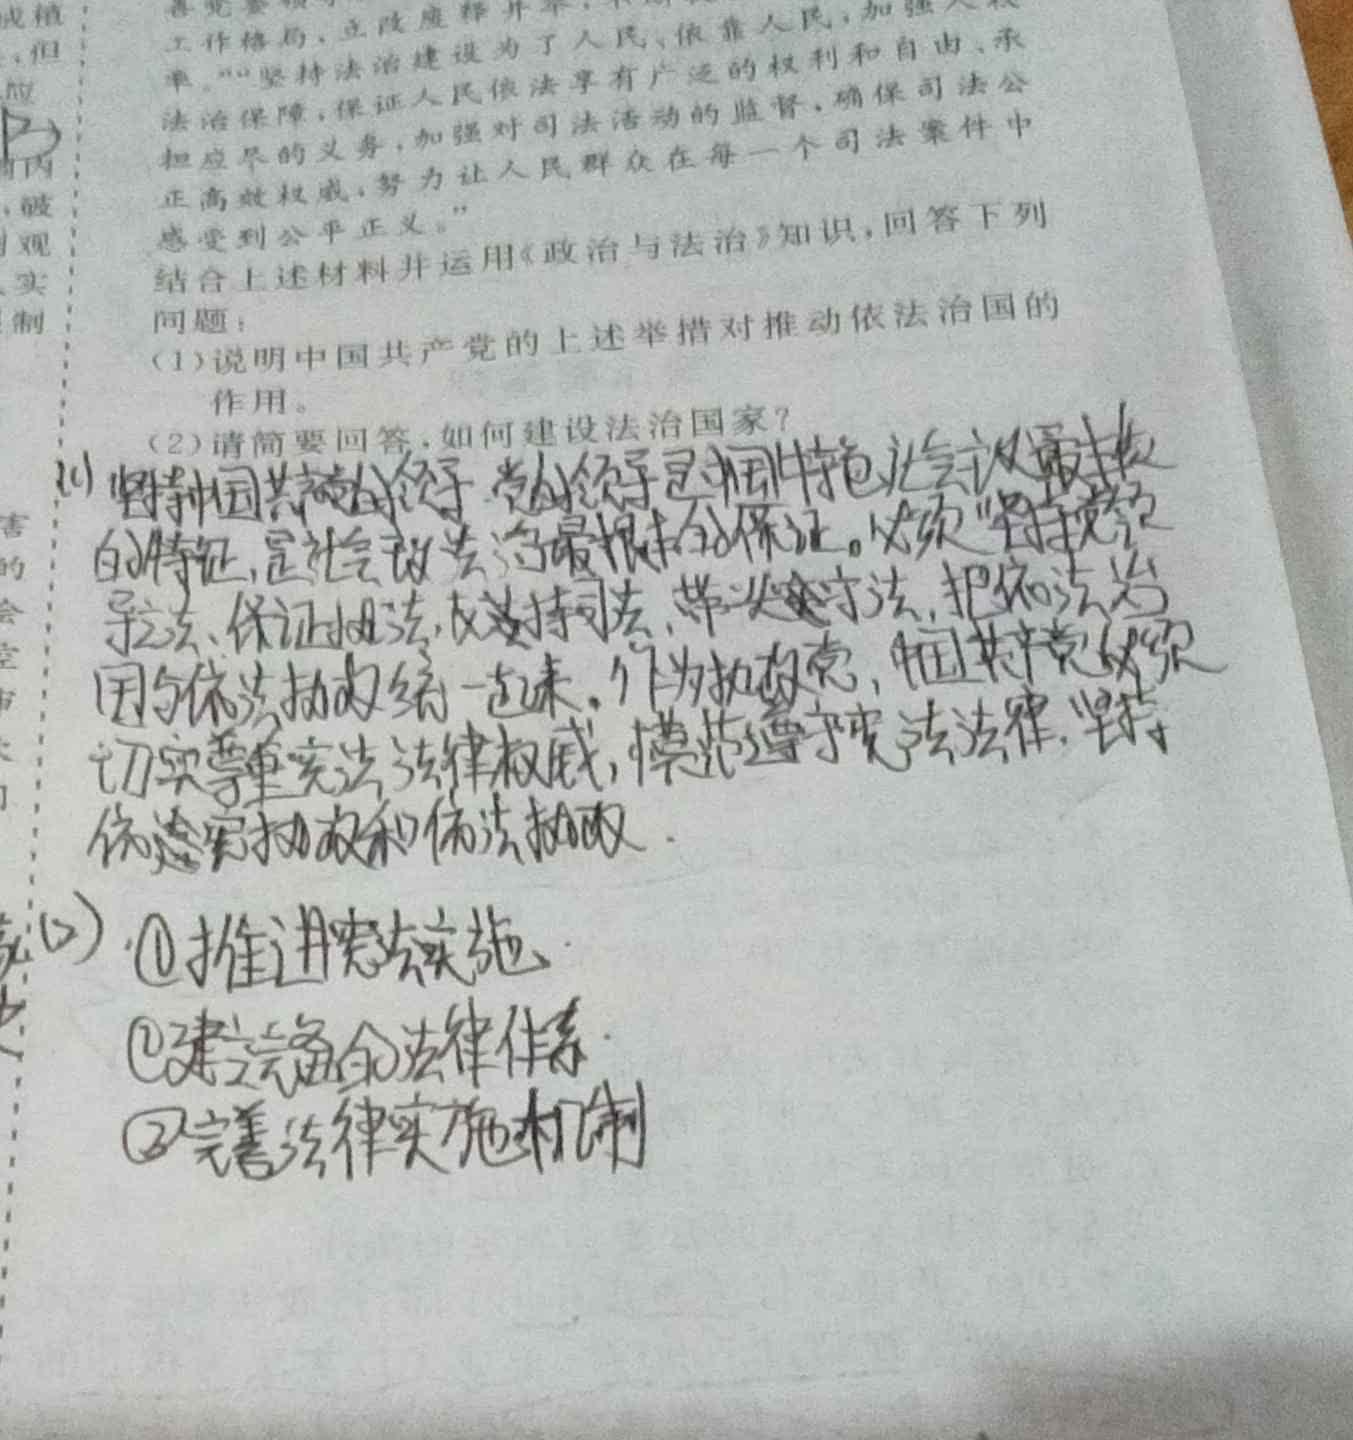 成稙
,但
应
内
,破
观
实
制
工作格局,立改废释并举,
率。”“坚持法治建设为了人民、依靠人民,加强人权
法治保障,保证人民依法享有广泛的权利和自由、承
担应尽的义务,加强对司法活动的监督,确保司法公
正高效权威,努力让人民群众在每一个司法案件中
感受到公平正义。”
结合上述材料并运用《政治与法治》知识,回答下列
问题:
(1)说明中国共产党的上述举措对推动依法治国的
作用。
(2)请简要回答,如何建设法治国家?
害
的
会
(1) 坚持中国共产党的领导.党的领导是中国特色社会主义最本质
的特征,是社会主义法治最根本的保证。必须坚持党领
导立法、保证执法,支持司法,带头守法,把依法治
国与依法执政统一起来。作为执政党,中国共产党必须
切实尊重宪法法律权威,模范遵守宪法法律.坚持
依宪执政和依法执政.
(2) ①推进宪法实施.
②建立完备的法律体系.
③完善法律实施机制